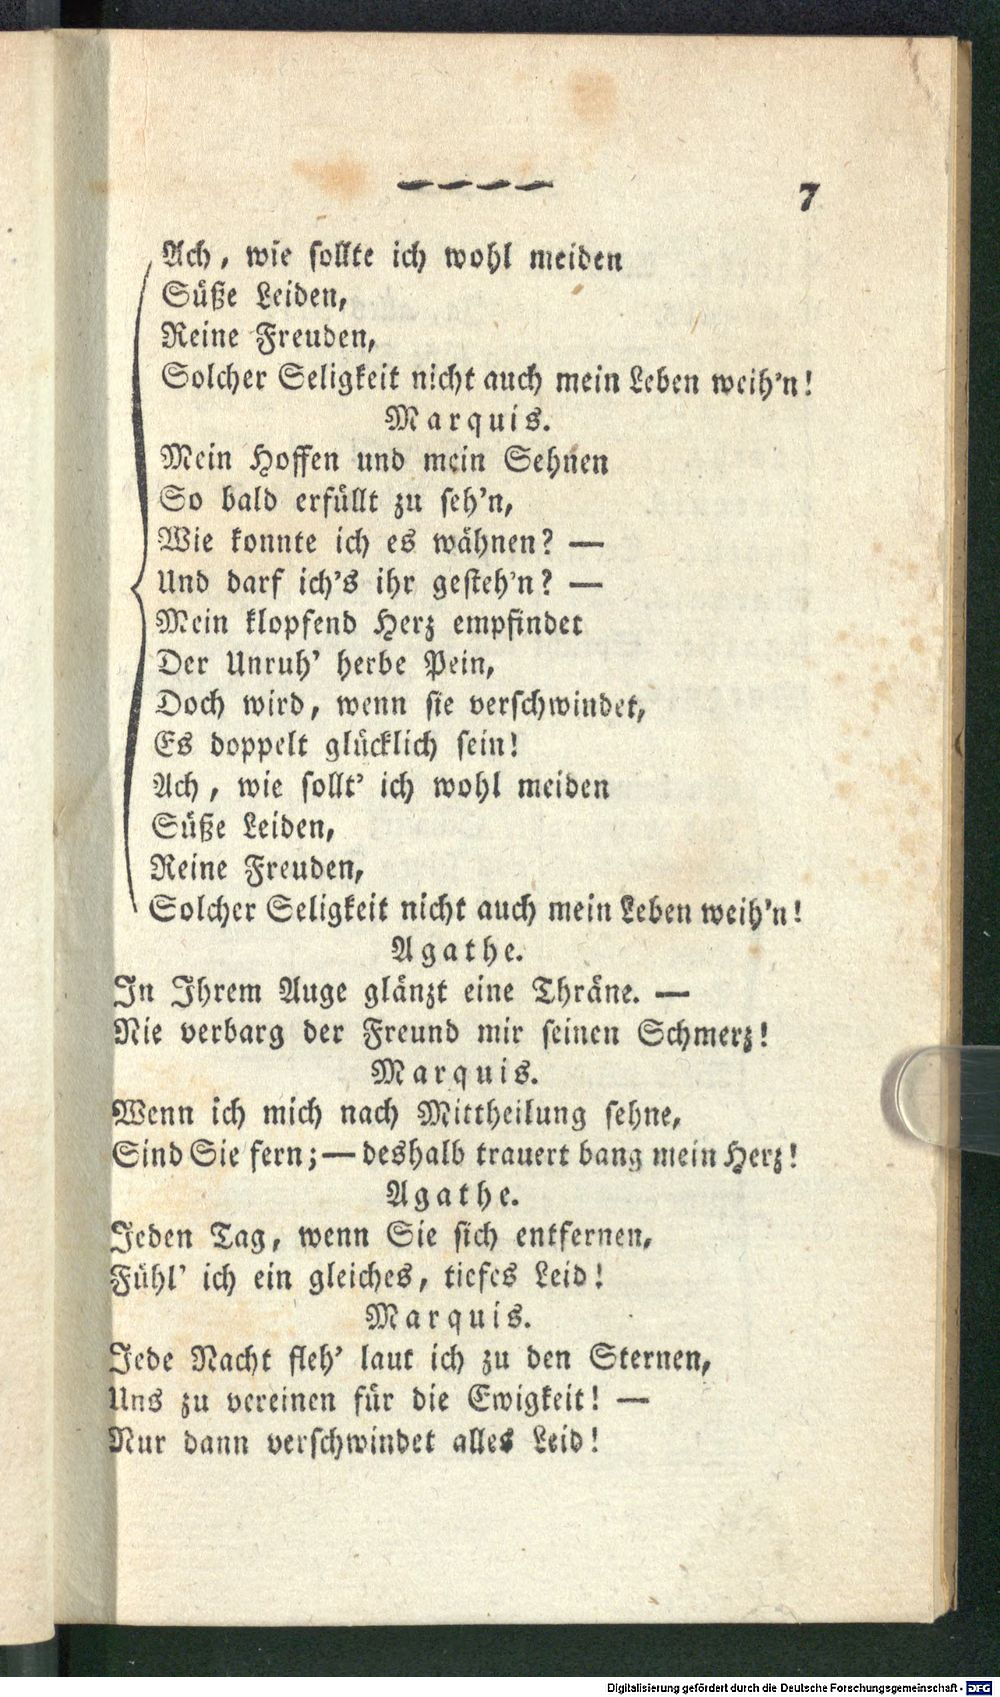 7
Ach, wie sollte ich wohl meiden
Süße Leiden,
Reine Freuden,
Solcher Seligkeit nicht auch mein Leben weih'n!
Marquis.
Mein Hoffen und mein Sehnen
So bald erfüllt zu seh'n,
Wie konnte ich es wähnen? —
Und darf ich's ihr gesteh'n? —
Mein klopfend Herz empfindet
Der Unruh' herbe Pein,
Doch wird, wenn sie verschwindet,
Es doppelt glücklich sein!
Ach, wie sollt' ich wohl meiden
Süße Leiden,
Reine Freuden,
Solcher Seligkeit nicht auch mein Leben weih'n!
Agathe.
In Ihrem Auge glänzt eine Thräne. —
Nie verbarg der Freund mir seinen Schmerz!
Marquis.
Wenn ich mich nach Mittheilung sehne,
Sind Sie fern; — deshalb trauert bang mein Herz!
Agathe.
Jeden Tag, wenn Sie sich entfernen,
Fühl' ich ein gleiches, tiefes Leid!
Marquis.
Jede Nacht fleh' laut ich zu den Sternen,
Uns zu vereinen für die Ewigkeit! —
Nur dann verschwindet alles Leid!
Digitalisierung gefördert durch die Deutsche Forschungsgemeinschaft - DFG